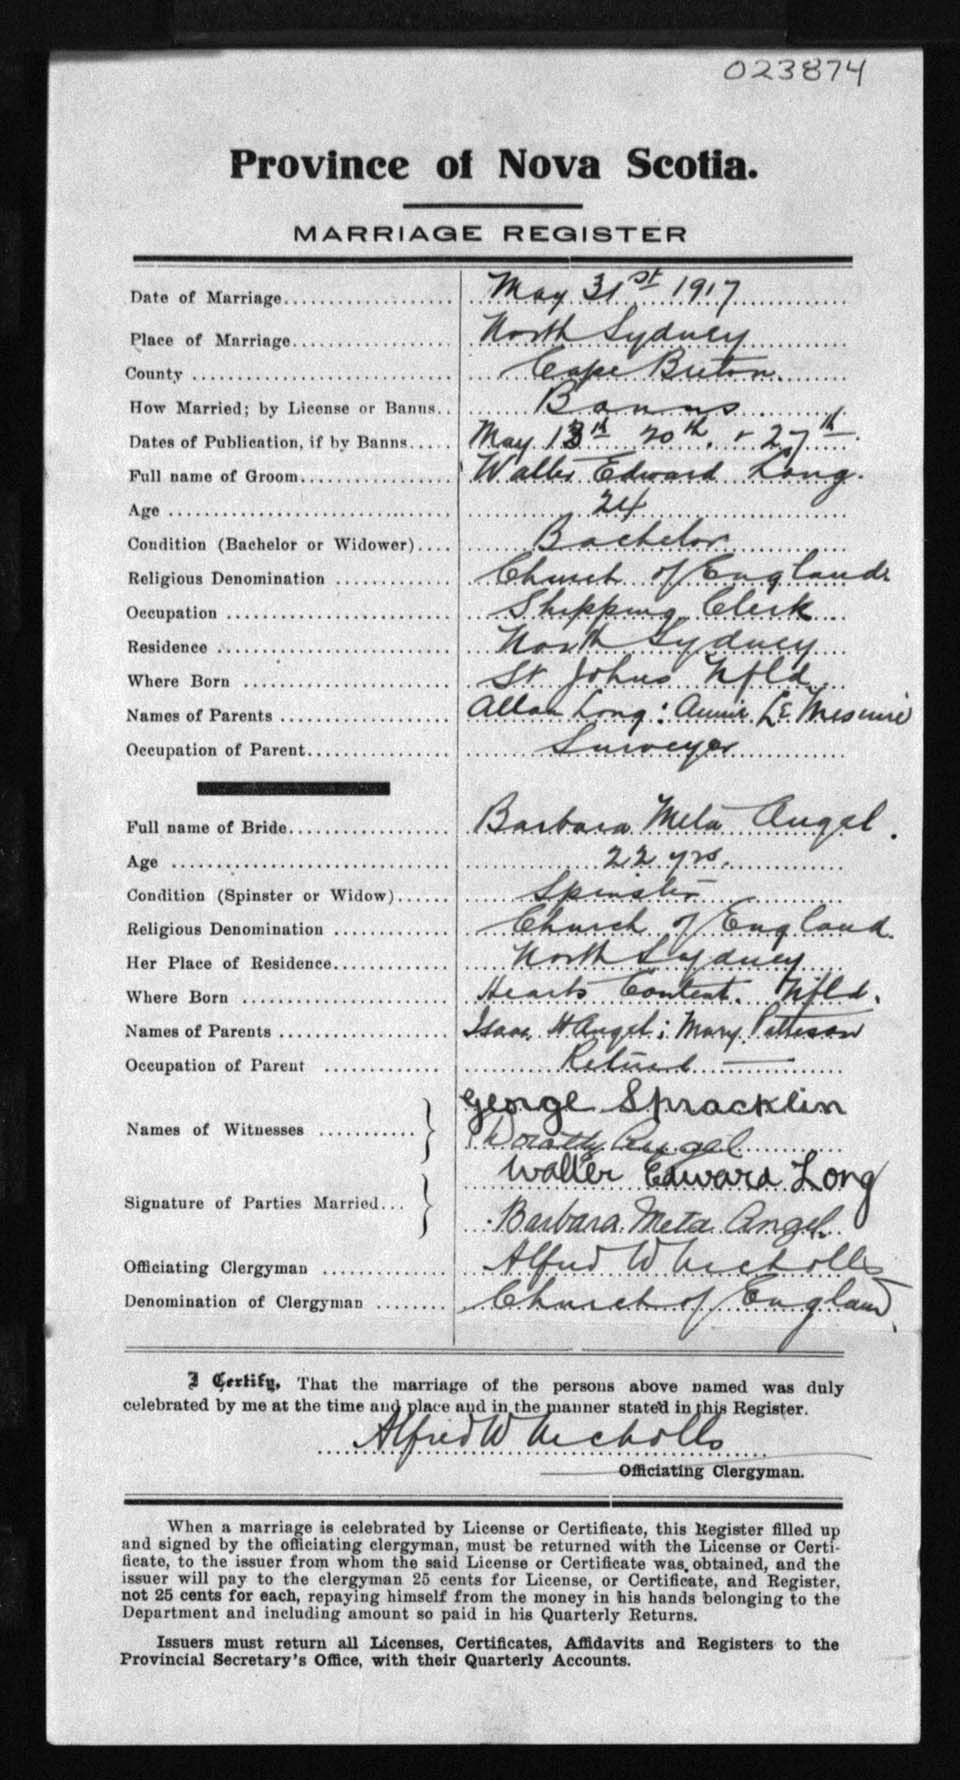 023874
Province of Nova Scotia.
MARRIAGE REGISTER
Date of Marriage................... May 31st 1917
Place of Marriage.................. North Sydney
County ............................. Cape Breton
How Married; by License or Banns.. Banns
Dates of Publication, if by Banns..... May 13th 20th. + 27th
Full name of Groom................. Walter Edward Long.
Age ................................ 24
Condition (Bachelor or Widower).... Bachelor
Religious Denomination ............. Church of England
Occupation ......................... Shipping Clerk
Residence .......................... North Sydney
Where Born ....................... St Johns Nfld
Names of Parents ................... Allan Long: Annie Le Mesurie
Occupation of Parent................ Surveyor
Full name of Bride.................. Barbara Meta Angel.
Age ............................... 22 yrs.
Condition (Spinster or Widow)...... Spinster
Religious Denomination ............. Church of England.
Her Place of Residence............. North Sydney
Where Born ....................... Hearts Content. Nfld.
Names of Parents ................... Isaac H Angel: Mary Patteson
Occupation of Parent ............. Retired
Names of Witnesses ........... } George Spracklin
Dorothy Angel
Signature of Parties Married... } Walter Edward Long
Barbara Meta Angel.
Officiating Clergyman .............. Alfred W Nicholls
Denomination of Clergyman ........ Church of England.
I Certify, That the marriage of the persons above named was duly
celebrated by me at the time and place and in the manner stated in this Register.
Alfred W Nicholls
Officiating Clergyman.
When a marriage is celebrated by License or Certificate, this Register filled up
and signed by the officiating clergyman, must be returned with the License or Certi-
ficate, to the issuer from whom the said License or Certificate was obtained, and the
issuer will pay to the clergyman 25 cents for License, or Certificate, and Register,
not 25 cents for each, repaying himself from the money in his hands belonging to the
Department and including amount so paid in his Quarterly Returns.
Issuers must return all Licenses, Certificates, Affidavits and Registers to the
Provincial Secretary's Office, with their Quarterly Accounts.